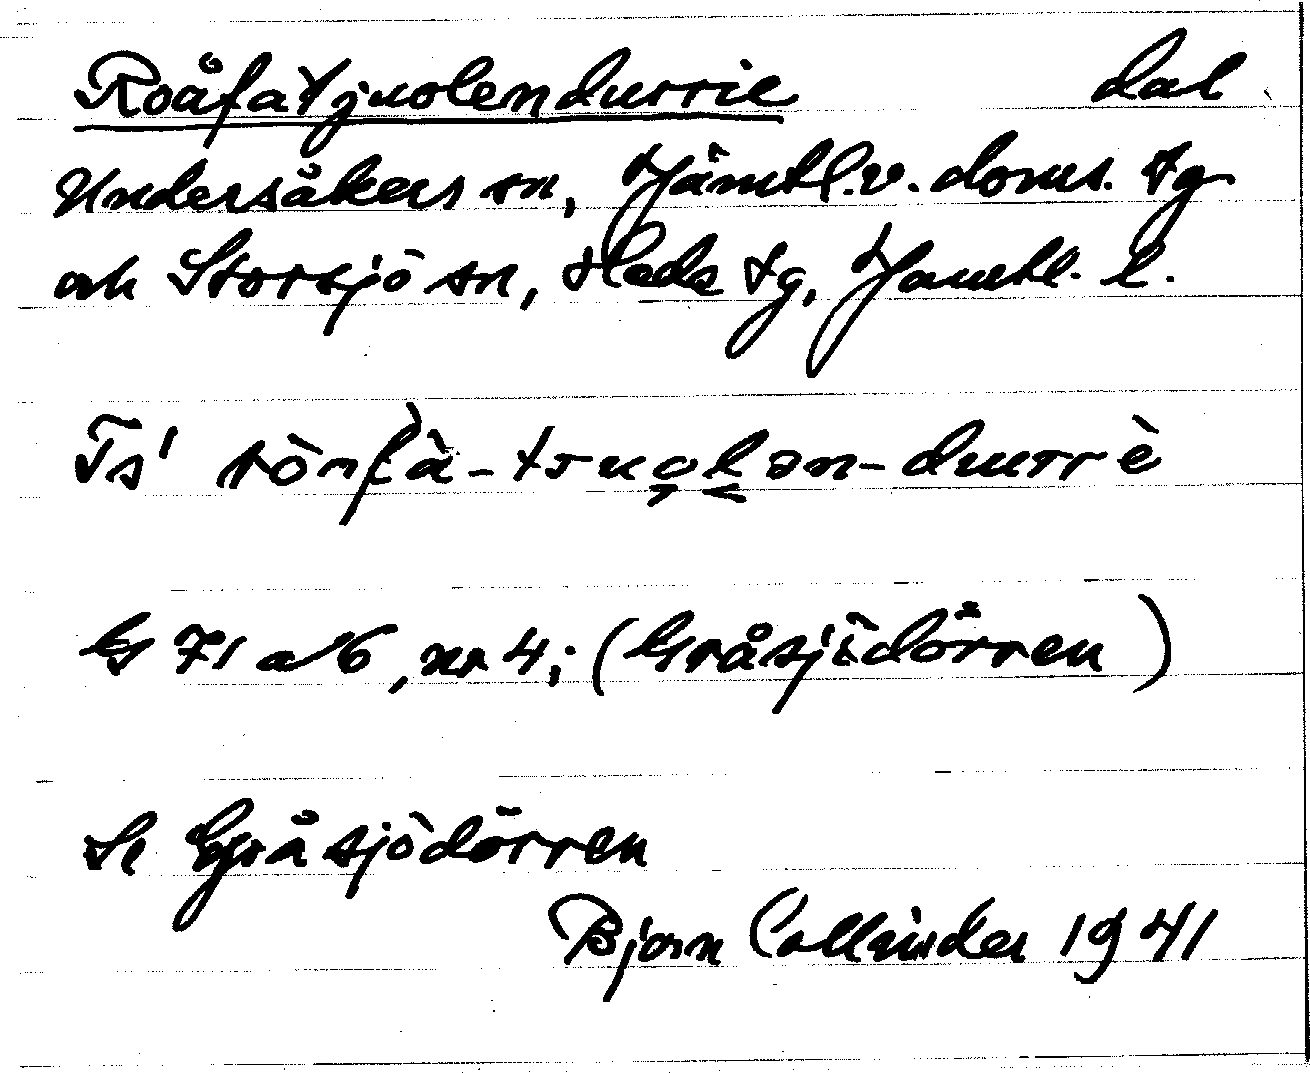 Roåfatjuolendurrie dal
Undersåkers sn, Jämtl.v. doms. tg
och Storsjö sn, Heds tg, Jämtl. l.
Ts' rōnfà-tsuolən-durrè
G 71 a 6, nr 4; (Gråsjödörren)
Se Gråsjödörren
Björn Collinder 1941